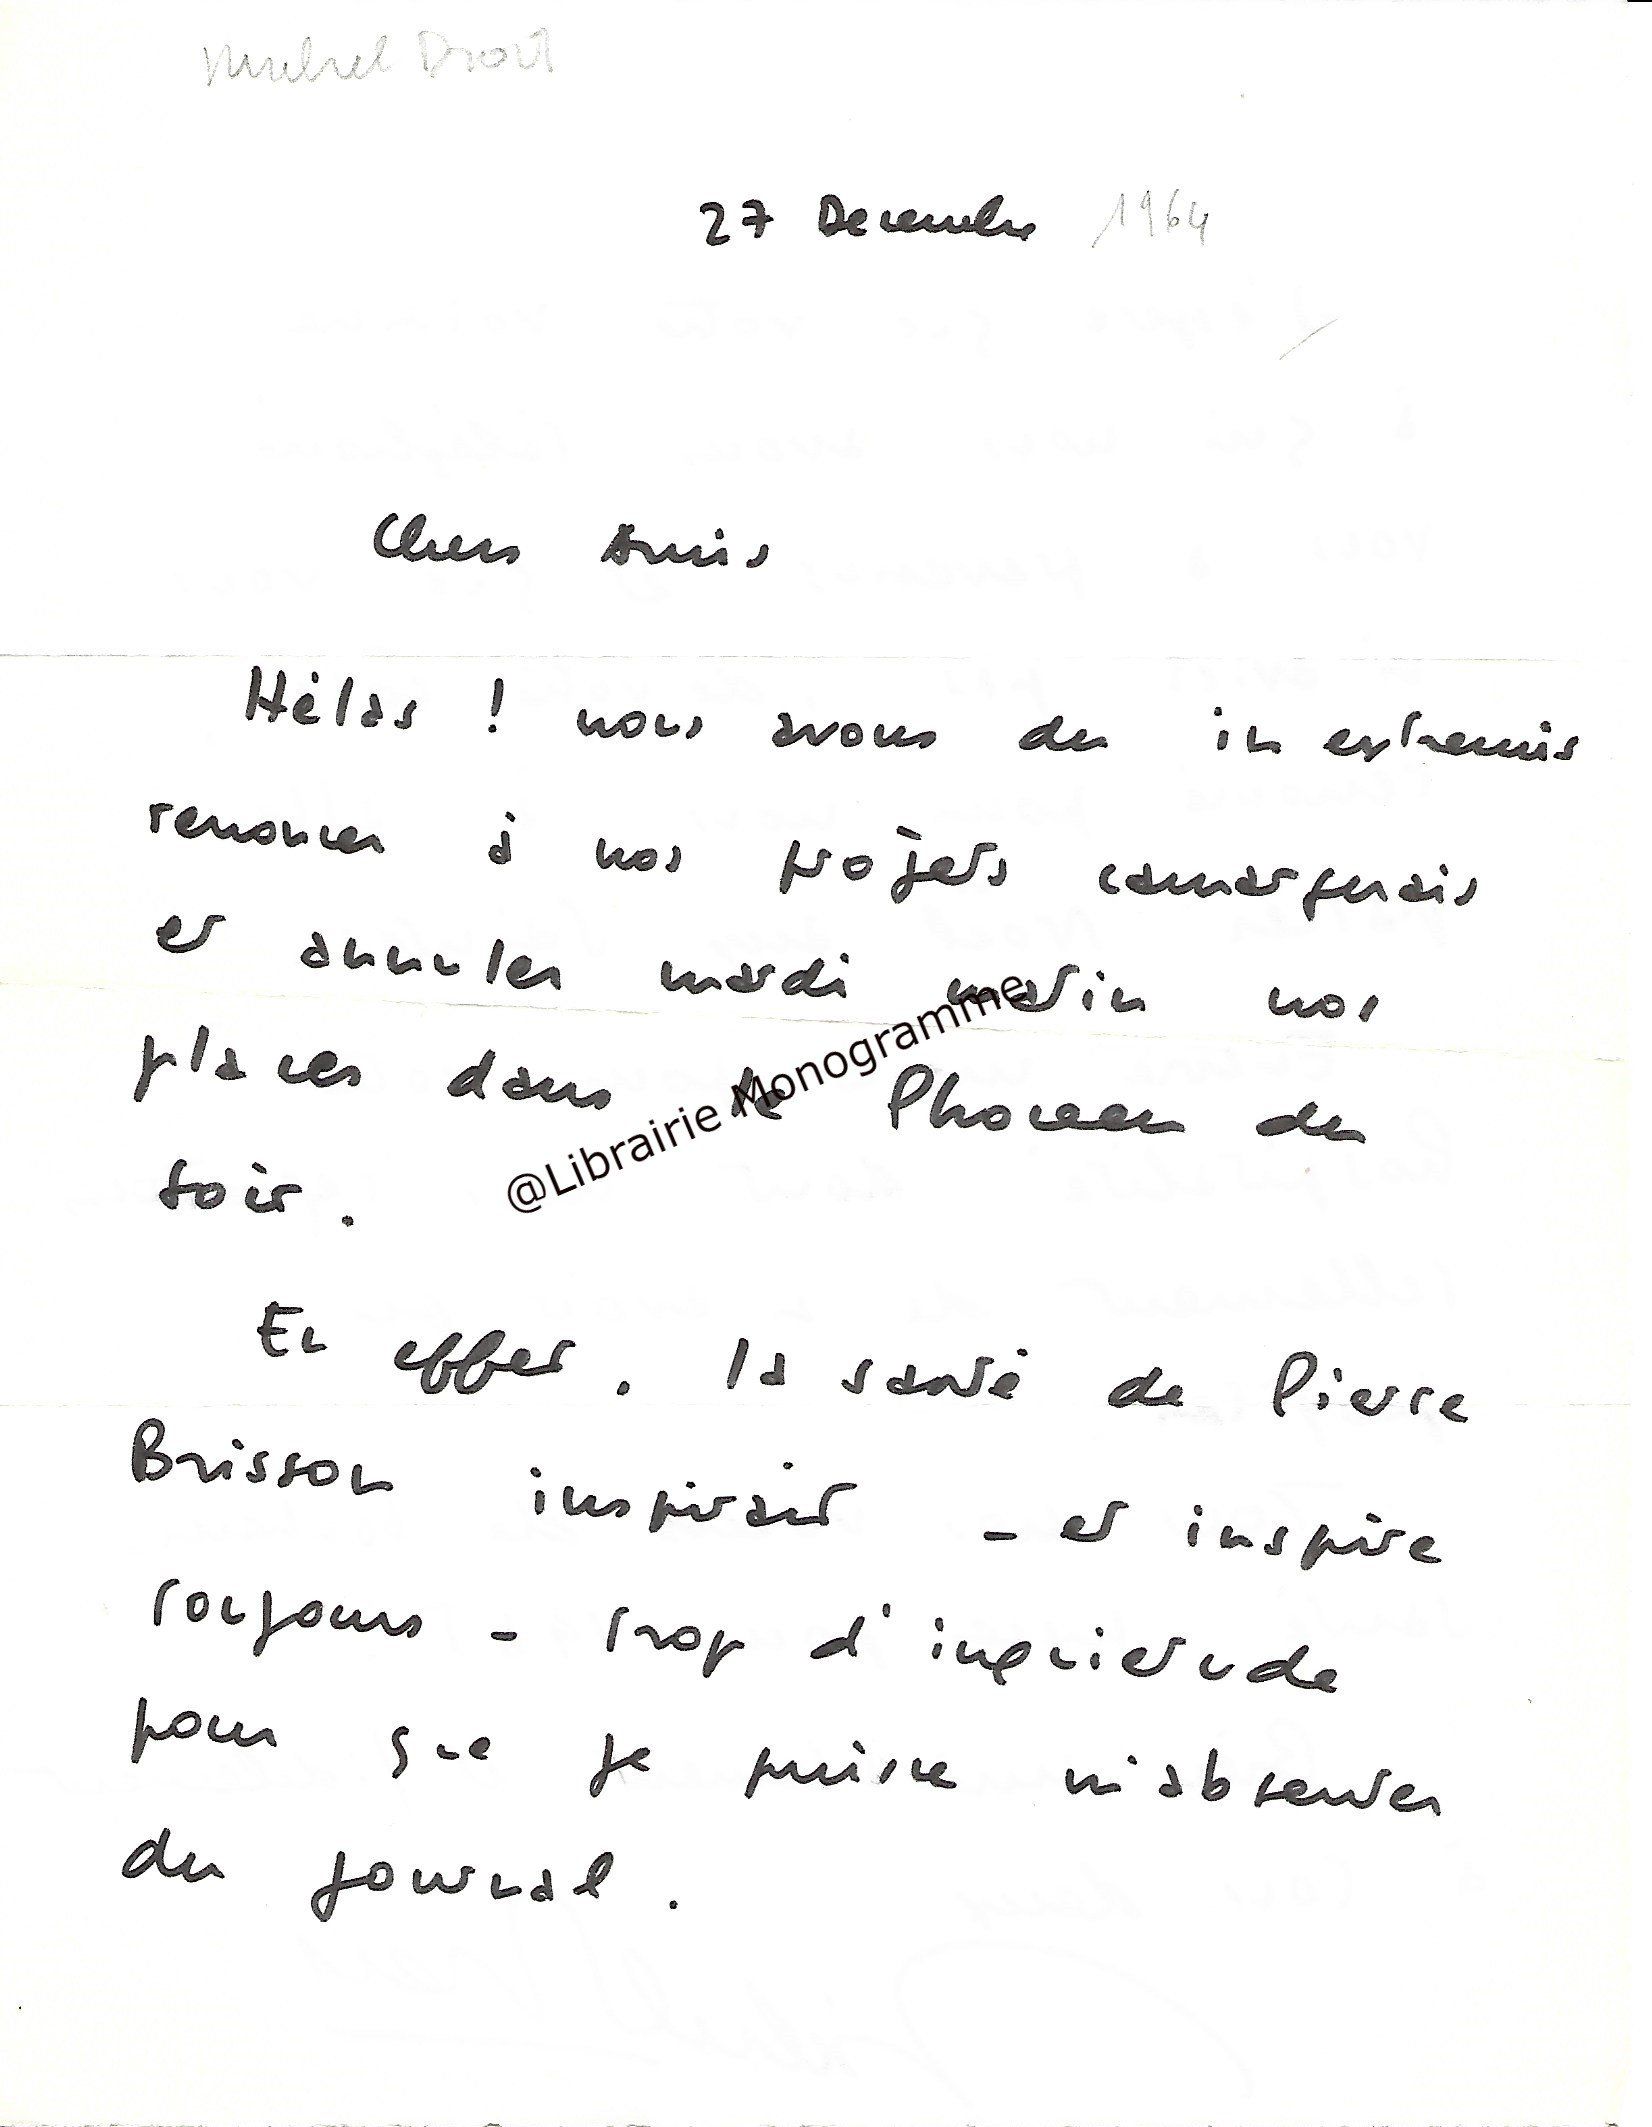 Michel Droit
27 Decembre 1964
Chers Amis
Hélas ! nous avons du in extremis
renoncer à nos projets camarguais
et annuler mardi matin nos
places dans le Phoceen du
soir.
@Librairie Monogramme
En effet, la santé de Pierre
Brisson inspirait – et inspire
toujours – trop d'inquietude
pour que je puisse m'absenter
du journal.